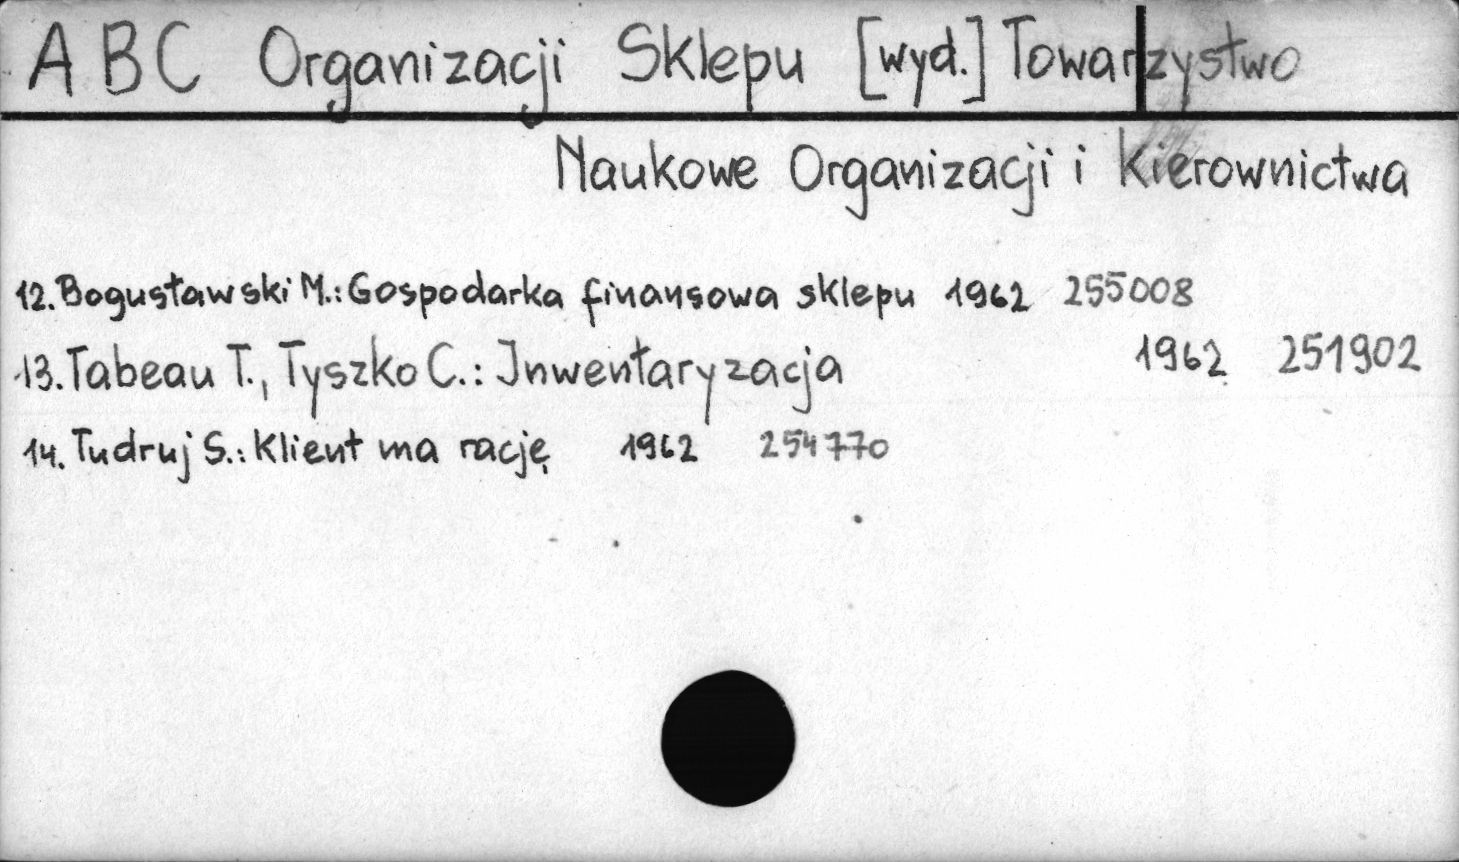 ABC Organizacji Sklepu [wyd.] Towarzystwo
Naukowe Organizacji i Kierownictwa
12. Bogusławski M.: Gospodarka finansowa sklepu 1962 255008
13. Tabeau T., Tyszko C.: Inwentaryzacja 1962 251902
14. Tudruj S.: Klient ma rację 1962 254770